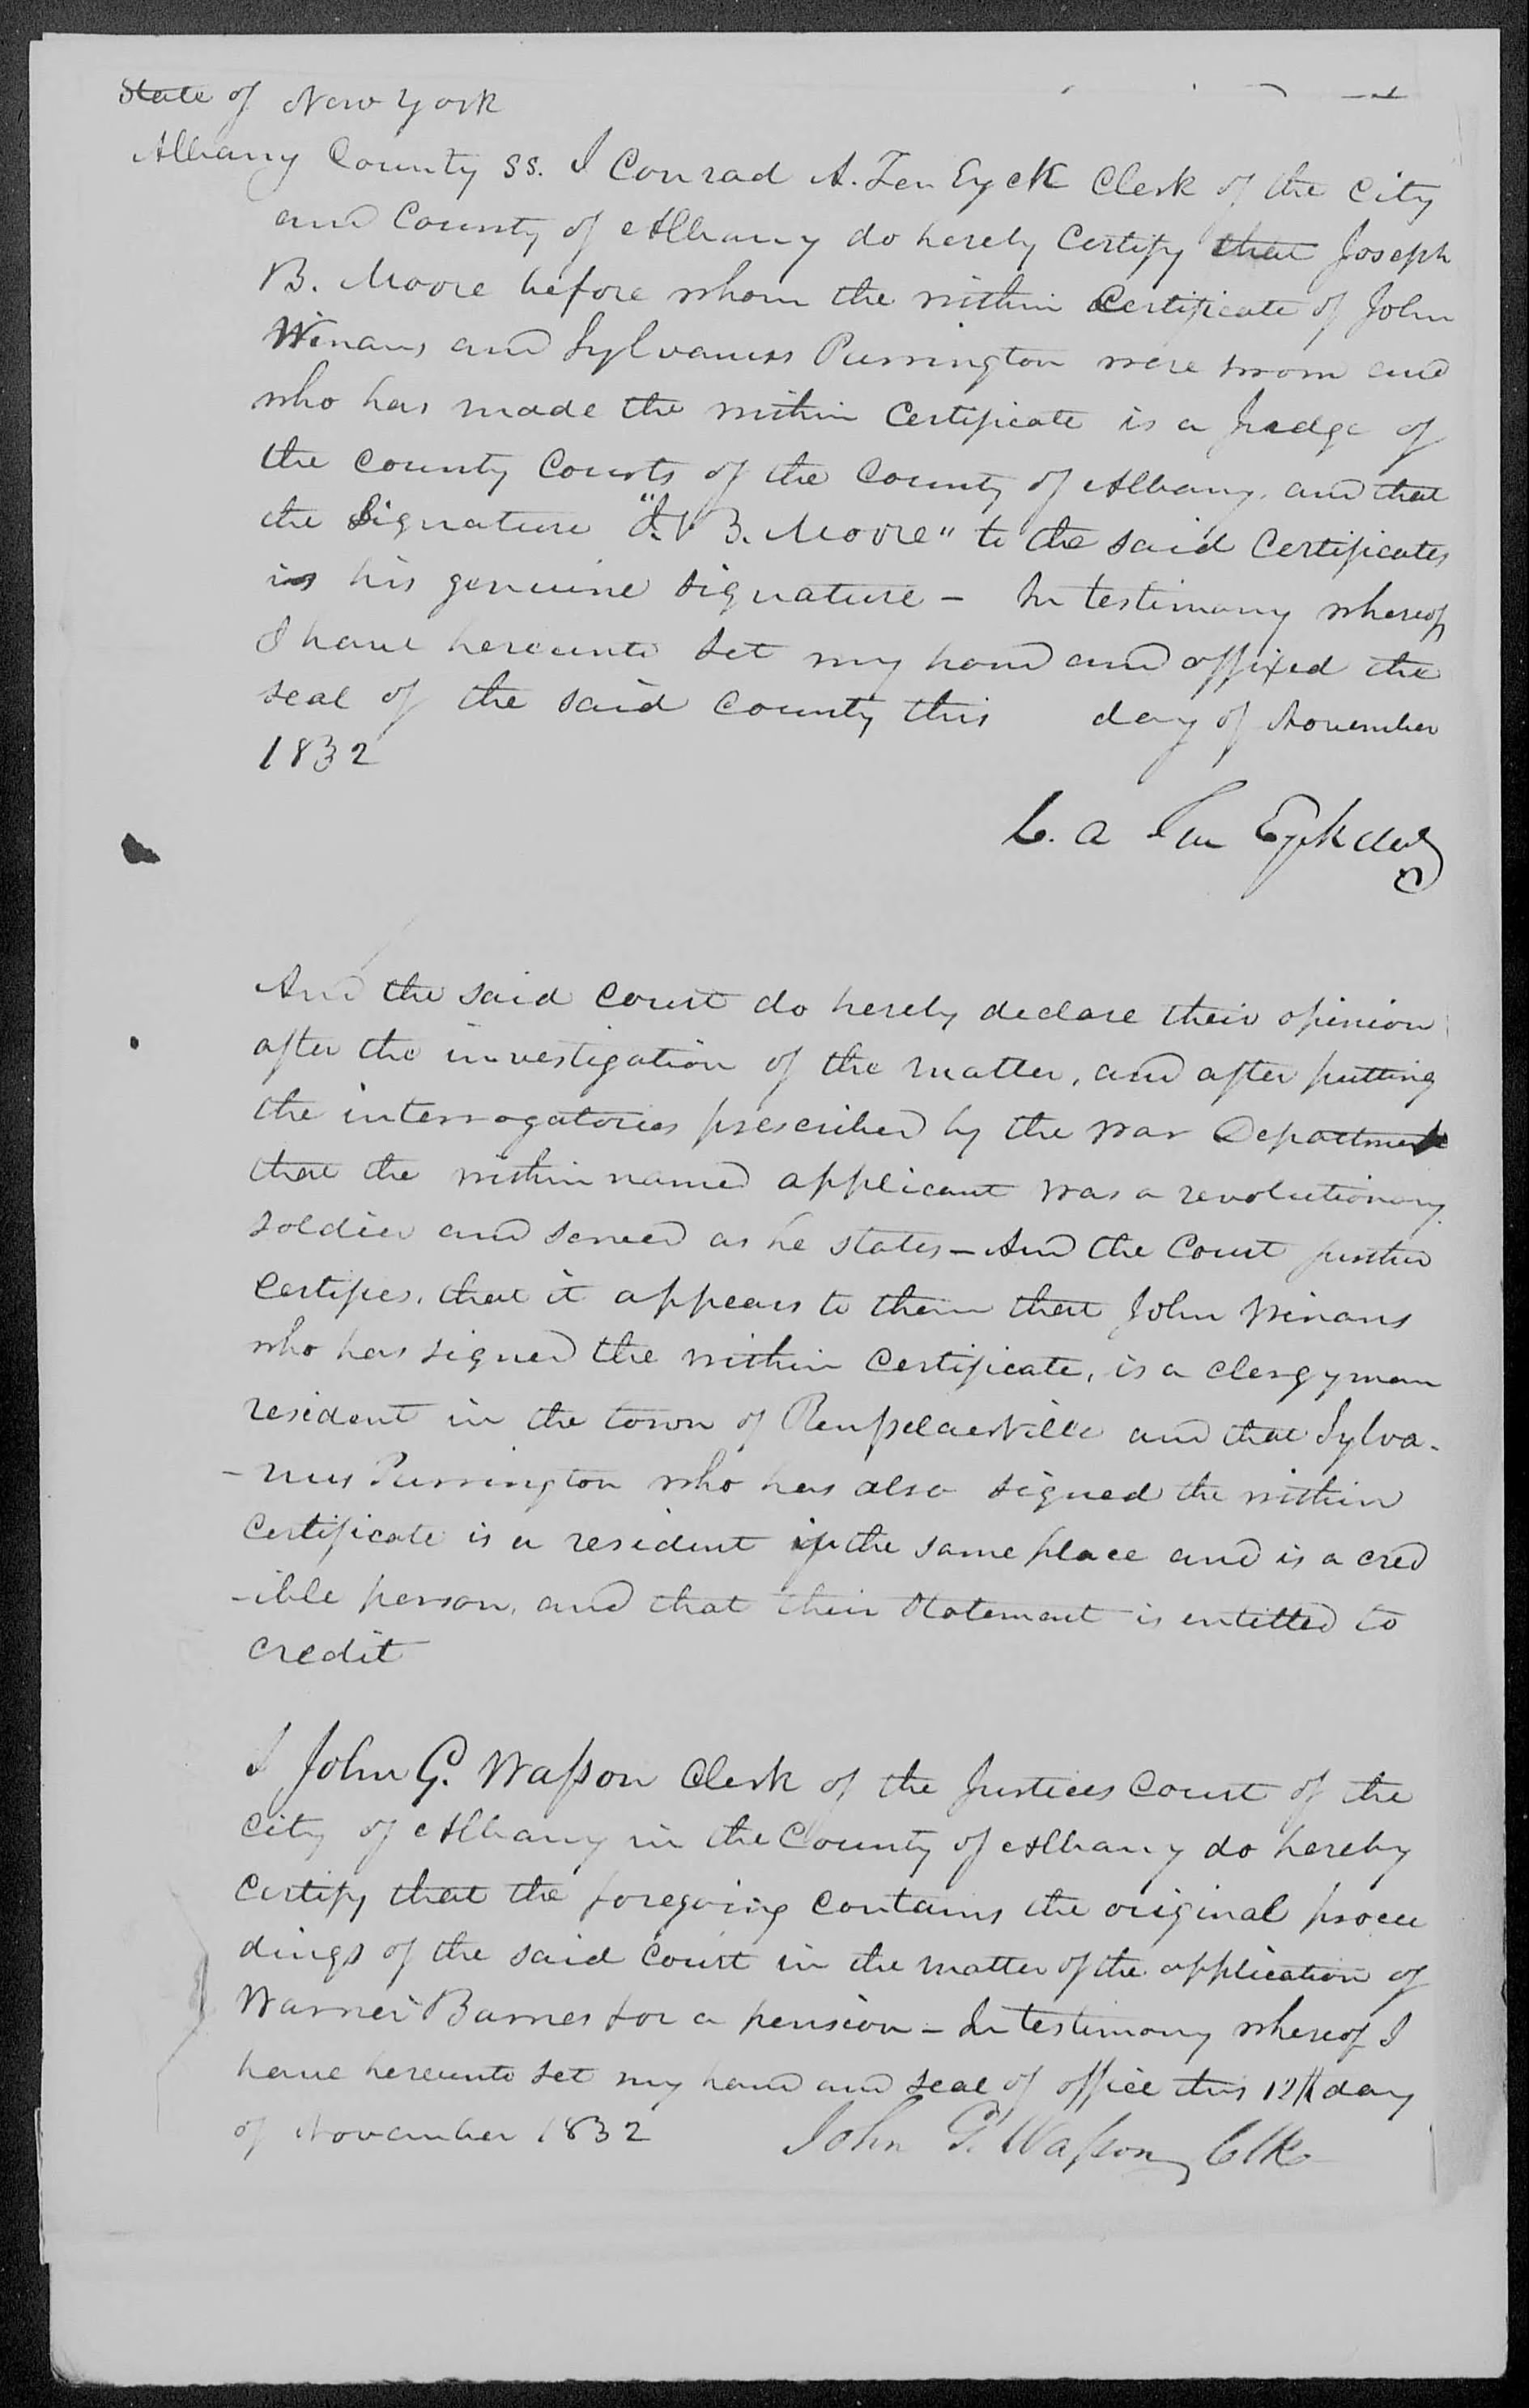 State of New York
Albany County ss. I Conrad A. Ten Eyck Clerk of the City
and County of Albany do hereby Certify that Joseph
B. Moore before whom the within Certificate of John
Winans and Sylvanus Purrington were sworn and
who has made the within Certificate is a Judge of
the County Courts of the County of Albany, and that
the Signature "J. B. Moore" to the said Certificates
is his genuine signature – In testimony whereof
I have hereunto set my hand and affixed the
seal of the said County this day of November
1832
C. A Ten Eyck clerk
And the said Court do hereby declare their opinion
after the investigation of the matter, and after putting
the interrogatories prescribed by the War Department
that the within named applicant was a revolutionary
soldier and served as he states – And the Court further
Certifies, that it appears to them that John Winans
who has signed the within Certificate, is a clergyman
resident in the town of Rensselaerville and that Sylva-
-nus Purrington who has also signed the within
Certificate is a resident in the same place and is a cred
-ible person, and that their statement is entitled to
credit
I John G. Wasson Clerk of the Justices Court of the
City of Albany in the County of Albany do hereby
Certify that the foregoing contains the original procee
dings of the said Court in the matter of the application of
Warner Barnes for a pension – In testimony whereof I
have hereunto set my hand and seal of office this 12th day
of November 1832 John G. Wasson, Clk